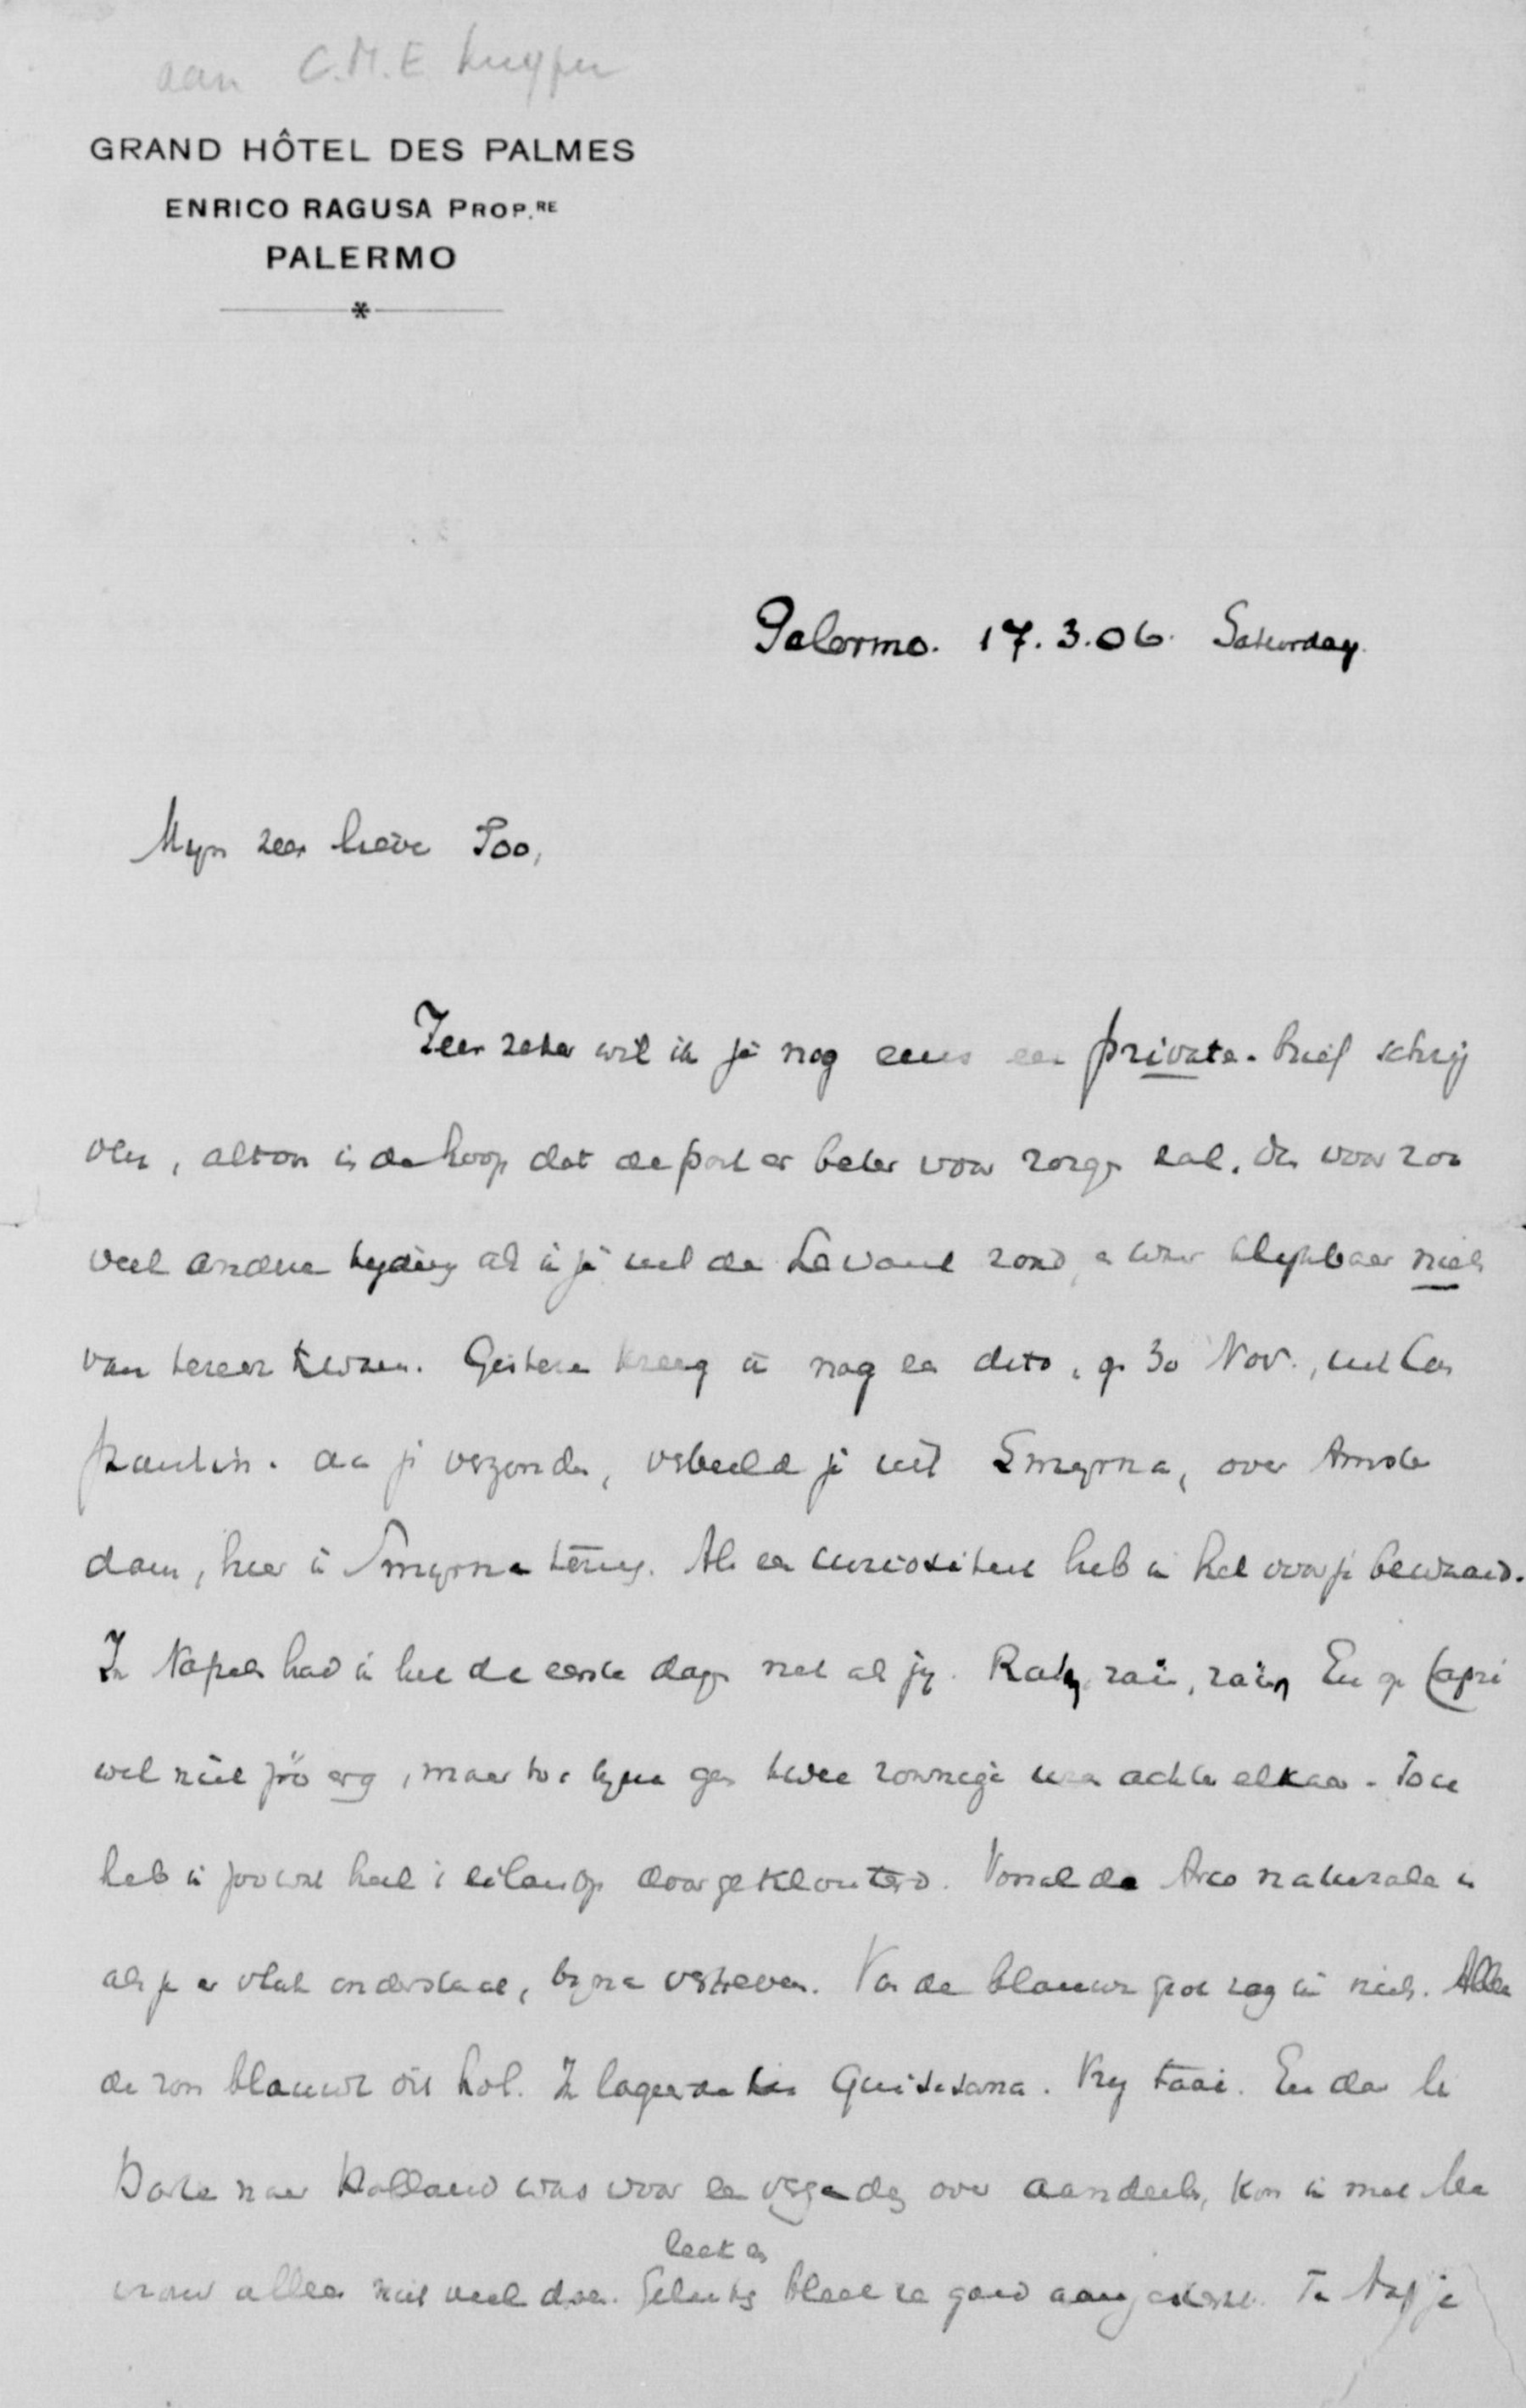 aan C.M.E. Kuyper
GRAND HÔTEL DES PALMES
ENRICO RAGUSA PROP.RE
PALERMO
Palermo. 17.3.06. Saturday.
Myn zeer lieve Too,
Zeer zeker wil ik je nog eens een private-brief schrij
ven, altoos in de hoop dat de post er beter voor zorgen zal. dan voor zoo
veel andere tyding als ik je uit de Levant zond, en waar blykbaar niets
van terecht kwam. Gisteren kreeg ik nog een dito, op 30 Nov., uit Con
stantin. aan je verzonden, verbeeld je uit Smyrna, over Amster
dam, hier in Smyrna terug. Als een curiositeit heb ik het voor je bewaard.
In Napels had ik het de eerste dagen net als jy. Rain, rain, rain, En op Capri
wel niet zóó erg, maar toch byna geen twee zonnige uren achter elkaar. Toen
heb ik zoowat heel 't eiland doorgeklouterd. Vooral de Arco naturale is
als je er vlak onderstaat, byna verheven. Van de blauwe grot zag ik niets. Alleen
de zon blauwt dit hol. Ik logeerde in Quisisana. Vry taai. En daar
naar Holland was voor een vergadg over aandeelen, kon ik met
vrouw alleen niet veel doen. Gelukkig
leek en
bleek ze goed aangekleed. Te